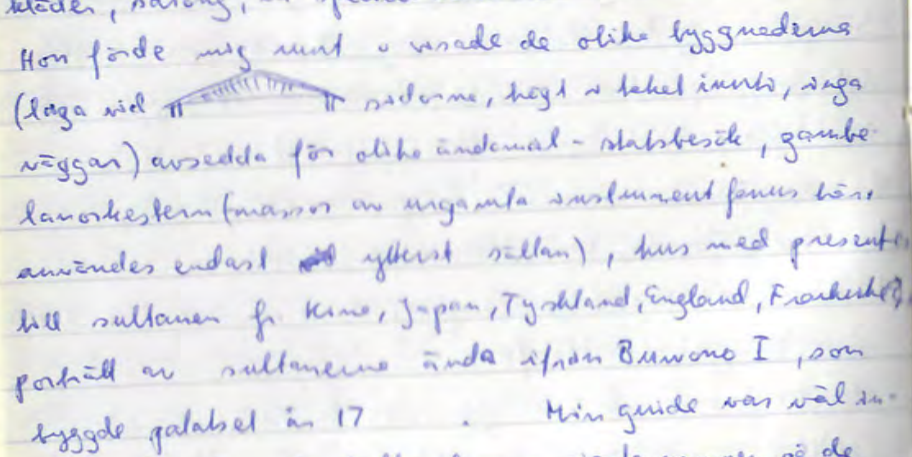 kläder, sarong,
Hon förde mig runt o visade de olika byggnaderna
(låga vid sidorna, högt i taket inuti, inga
väggar) avsedda för olika ändamål - statsbesök, gambe-
lanorkestern (massor av urgamla instrument fanns här,
användes endast ytterst sällan), hus med presenter
till sultanen fr. Kina, Japan, Tyskland, England, Frankrike,
porträtt av sultanerna ända ifrån Buwono I, som
byggde palatset år 17 . Min guide var väl in-
på de